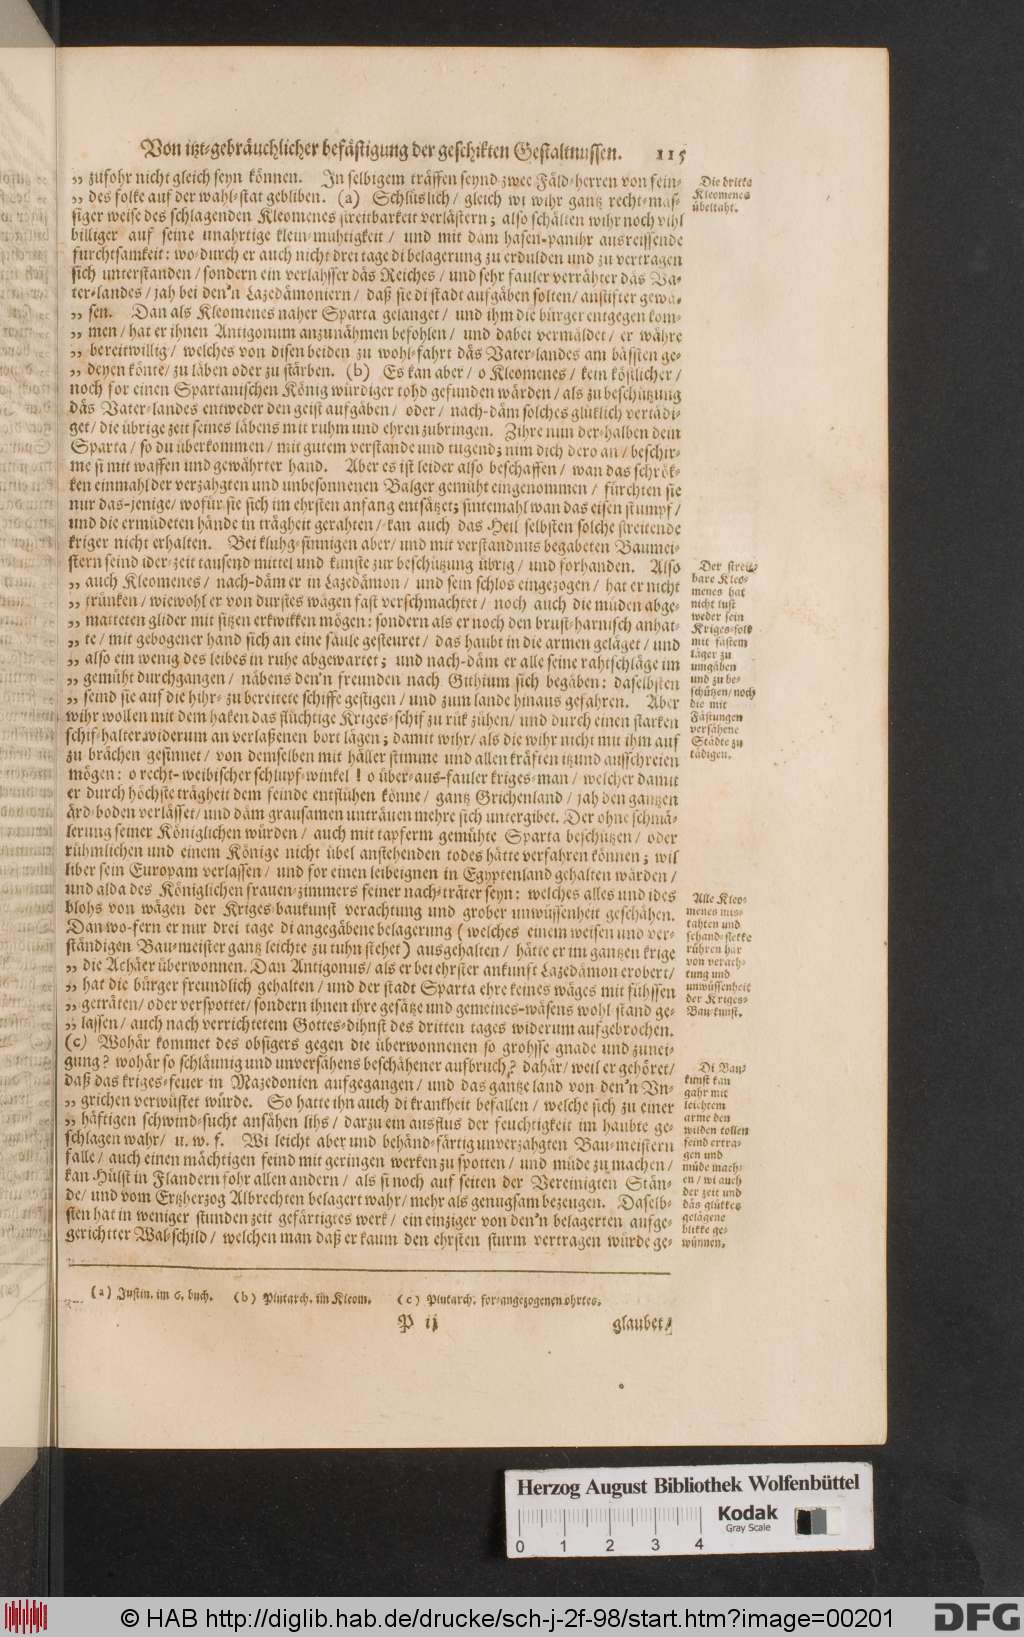 Von itzt-gebräuchlicher befästigung der geschikten Gestaltnussen. 115
„ zufohr nicht gleich seyn können. In selbigem träffen seynd zwee Fäld-herren von sein-
„ des folke auf der wahl-stat gebliben. (a) Schlüslich / gleich wi wihr gantz recht-mas-
siger weise des schlagenden Kleomenes streitbarkeit verlästern; also schälten wihr noch vihl
billiger auf seine unahrtige klein-mühtigkeit / und mit däm hasen-panihr ausreissende
furchtsamkeit: wo-durch er auch nicht drei tage di belagerung zu erdulden und zu vertragen
sich unterstanden / sondern ein verlahsser däs Reiches / und sehr fauler verrähter däs Va-
ter-landes / jah bei den'n Lazedämoniern / daß sie di stadt aufgäben solten / anstifter gewä-
„ sen. Dan als Kleomenes naher Sparta gelanget / und ihm die bürger entgegen kom-
„ men / hat er ihnen Antigonum anzunähmen befohlen / und dabei vermäldet / er währe
„ bereitwillig / welches von disen beiden zu wohl-fahrt däs Vater-landes am bässten ge-
„ deyen könte / zu läben oder zu stärben. (b) Es kan aber / o Kleomenes / kein köstlicher /
noch for einen Spartanischen König würdiger tohd gefunden wärden / als zu beschützung
däs Vater-landes entweder den geist aufgäben / oder / nach-däm solches glüklich vertädi-
get / die übrige zeit seines läbens mit ruhm und ehren zubringen. Zihre nun der-halben dein
Sparta / so du überkommen / mit gutem verstande und tugend; nim dich dero an / beschir-
me si mit waffen und gewährter hand. Aber es ist leider also beschaffen / wan das schrök-
ken einmahl der verzahgten und unbesonnenen Balger gemüht eingenommen / fürchten sie
nur das-jenige / wofür sie sich im ehrsten anfang entsätzet; sintemahl wan das eisen stumpf /
und die ermüdeten hände in trägheit gerahten / kan auch das Heil selbsten solche streitende
kriger nicht erhalten. Bei kluhg-sinnigen aber / und mit verständnus begabeten Baumei-
stern seind ider-zeit tausend mittel und künste zur beschützung übrig / und forhanden. Also
„ auch Kleomenes / nach-däm er in Lazedämon / und sein schlos eingezogen / hat er nicht
„ trünken / wiewohl er von durstes wägen fast verschmachtet / noch auch die müden abge-
„ matteten glider mit sitzen erkwikken mögen: sondern als er noch den brust-harnisch anhat-
„ te / mit gebogener hand sich an eine säule gesteuret / das haubt in die armen geläget / und
„ also ein wenig des leibes in ruhe abgewartet; und nach-däm er alle seine rahtschläge im
„ gemüht durchgangen / näbens den'n freunden nach Githium sich begäben: daselbsten
„ seind sie auf die hihr-zu bereitete schiffe gestigen / und zum lande hinaus gefahren. Aber
wihr wollen mit dem haken das flüchtige Kriges-schif zu rük zühen / und durch einen starken
schif-halter widerum an verlaßenen bort lägen; damit wihr / als die wihr nicht mit ihm auf
zu brächen gesinnet / von demselben mit häller stimme und allen kräften itzund ausschreien
mögen: o recht-weibischer schlupf-winkel! o über-aus-fauler kriges-man / welcher damit
er durch höchste trägheit dem feinde entflühen könne / gantz Grichenland / jah den gantzen
ärd-boden verlässet / und däm grausamen unträuen mehre sich untergibet. Der ohne schmä-
lerung seiner Königlichen würden / auch mit tapferm gemühte Sparta beschützen / oder
rühmlichen und einem Könige nicht übel anstehenden todes hätte verfahren können; wil
liber sein Europam verlassen / und for einen leibeignen in Egyptenland gehalten wärden /
und alda des Königlichen frauen-zimmers seiner nach-träter seyn: welches alles und ides
blohs von wägen der Kriges-baukunst verachtung und grober unwüssenheit geschähen.
Dan wo-fern er nur drei tage di angegäbene belagerung (welches einem weisen und ver-
ständigen Bau-meister gantz leichte zu tuhn stehet) ausgehalten / hätte er im gantzen krige
„ die Achäer überwonnen. Dan Antigonus / als er bei ehrster ankunft Lazedämon erobert /
„ hat die bürger freundlich gehalten / und der stadt Sparta ehre keines wäges mit fühssen
„ geträten / oder verspottet / sondern ihnen ihre gesätze und gemeines-wäsens wohl stand ge-
„ lassen / auch nach verrichtetem Gottes-dihnst des dritten tages widerum aufgebrochen.
(c) Wohär kommet des obsigers gegen die überwonnenen so grohsse gnade und zunei-
gung? wohär so schläunig und unversähens beschähener aufbruch? dahär / weil er gehöret /
daß das kriges-feuer in Mazedonien aufgegangen / und das gantze land von den'n Un-
„ grichen verwüstet würde. So hatte ihn auch di krankheit befallen / welche sich zu einer
„ häftigen schwind-sucht ansähen lihs / darzu ein ausflus der feuchtigkeit im haubte ge-
schlagen wahr / u. w. f. Wi leicht aber und behänd-färtig unverzahgten Bau-meistern
falle / auch einen mächtigen feind mit geringen werken zu spotten / und müde zu machen /
kan Hülst in Flandern fohr allen andern / als si noch auf seiten der Vereinigten Stän-
de / und vom Ertzherzog Albrechten belagert wahr / mehr als genugsam bezeugen. Daselb-
sten hat in weniger stunden zeit gefärtigtes werk / ein einziger von den'n belagerten aufge-
gerichtter Wal-schild / welchen man daß er kaum den ehrsten sturm vertragen würde ge-
Die dritte
Kleomenes
übeltaht.
Der streit-
bare Kleo-
menes hat
nicht lust
weder sein
Kriges-folk
mit fästem
läger zu
umgäben
und zu be-
schützen / noch
die mit
Fästungen
versähene
Städte zu
tädigen.
Alle Kleo-
menes mis-
tahten und
schand-flekke
rühren här
von verach-
tung und
unwüssenheit
der Kriges-
Bau-kunst.
Di Bau-
kunst kan
gahr mit
leichtem
arme den
wilden tollen
feind ertra-
gen und
müde mach-
en / wi auch
der zeit und
däs glükkes
gelägene
blikke ge-
wünnen.
(a) Justin. im 6. buch. (b) Plutarch. im Kleom. (c) Plutarch. for-angezogenen ohrtes.
P ij glaubet /
Herzog August Bibliothek Wolfenbüttel
Kodak
Gray Scale
0 1 2 3 4
© HAB http://diglib.hab.de/drucke/sch-j-2f-98/start.htm?image=00201
DFG